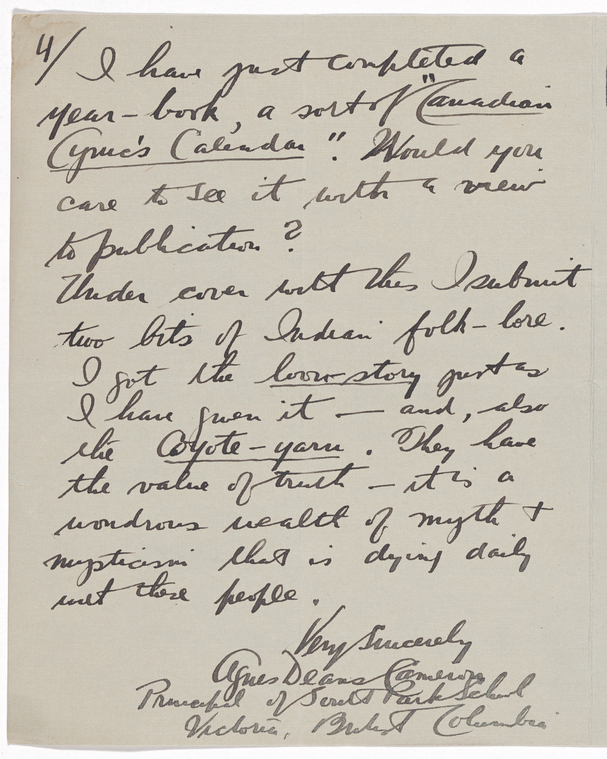 4/ I have just completed a
year-book, a sort of "Canadian
Cynic's Calendar". Would you
care to see it with a view
to publication?
Under cover with this I submit
two bits of Indian folk-lore.
I got the loon-story just as
I have given it — and, also
the Coyote-yarn. They have
the value of truth — it is a
wondrous wealth of myth +
mysticism that is dying daily
with these people.
Very Sincerely
Agnes Deans Cameron
Principal of South Park School
Victoria, British Columbia